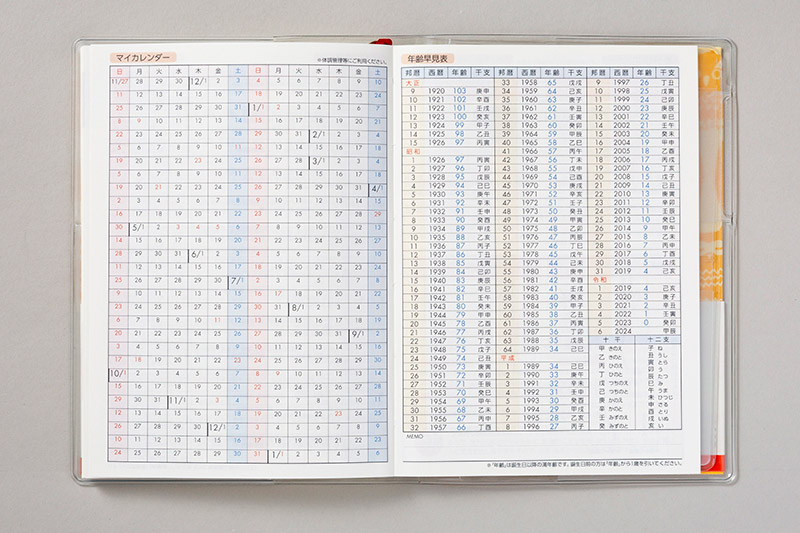 マイカレンダー
※体調管理等にご利用ください。
日 月 火 水 木 金 土 日 月 火 水 木 金 土
11/27 28 29 30 12/1 2 3 4 5 6 7 8 9 10
11 12 13 14 15 16 17 18 19 20 21 22 23 24
25 26 27 28 29 30 31 1/1 2 3 4 5 6 7
8 9 10 11 12 13 14 15 16 17 18 19 20 21
22 23 24 25 26 27 28 29 30 31 2/1 2 3 4
5 6 7 8 9 10 11 12 13 14 15 16 17 18
19 20 21 22 23 24 25 26 27 28 3/1 2 3 4
5 6 7 8 9 10 11 12 13 14 15 16 17 18
19 20 21 22 23 24 25 26 27 28 29 30 31 4/1
2 3 4 5 6 7 8 9 10 11 12 13 14 15
16 17 18 19 20 21 22 23 24 25 26 27 28 29
30 5/1 2 3 4 5 6 7 8 9 10 11 12 13
14 15 16 17 18 19 20 21 22 23 24 25 26 27
28 29 30 31 6/1 2 3 4 5 6 7 8 9 10
11 12 13 14 15 16 17 18 19 20 21 22 23 24
25 26 27 28 29 30 7/1 2 3 4 5 6 7 8
9 10 11 12 13 14 15 16 17 18 19 20 21 22
23 24 25 26 27 28 29 30 31 8/1 2 3 4 5
6 7 8 9 10 11 12 13 14 15 16 17 18 19
20 21 22 23 24 25 26 27 28 29 30 31 9/1 2
3 4 5 6 7 8 9 10 11 12 13 14 15 16
17 18 19 20 21 22 23 24 25 26 27 28 29 30
10/1 2 3 4 5 6 7 8 9 10 11 12 13 14
15 16 17 18 19 20 21 22 23 24 25 26 27 28
29 30 31 11/1 2 3 4 5 6 7 8 9 10 11
12 13 14 15 16 17 18 19 20 21 22 23 24 25
26 27 28 29 30 12/1 2 3 4 5 6 7 8 9
10 11 12 13 14 15 16 17 18 19 20 21 22 23
24 25 26 27 28 29 30 31 1/1 2 3 4 5 6
年齢早見表
邦暦 西暦 年齢 干支
大正
9 1920 103 庚申
10 1921 102 辛酉
11 1922 101 壬戌
12 1923 100 癸亥
13 1924 99 甲子
14 1925 98 乙丑
15 1926 97 丙寅
昭和
1 1926 97 丙寅
2 1927 96 丁卯
3 1928 95 戊辰
4 1929 94 己巳
5 1930 93 庚午
6 1931 92 辛未
7 1932 91 壬申
8 1933 90 癸酉
9 1934 89 甲戌
10 1935 88 乙亥
11 1936 87 丙子
12 1937 86 丁丑
13 1938 85 戊寅
14 1939 84 己卯
15 1940 83 庚辰
16 1941 82 辛巳
17 1942 81 壬午
18 1943 80 癸未
19 1944 79 甲申
20 1945 78 乙酉
21 1946 77 丙戌
22 1947 76 丁亥
23 1948 75 戊子
24 1949 74 己丑
25 1950 73 庚寅
26 1951 72 辛卯
27 1952 71 壬辰
28 1953 70 癸巳
29 1954 69 甲午
30 1955 68 乙未
31 1956 67 丙申
32 1957 66 丁酉
邦暦 西暦 年齢 干支
33 1958 65 戊戌
34 1959 64 己亥
35 1960 63 庚子
36 1961 62 辛丑
37 1962 61 壬寅
38 1963 60 癸卯
39 1964 59 甲辰
40 1965 58 乙巳
41 1966 57 丙午
42 1967 56 丁未
43 1968 55 戊申
44 1969 54 己酉
45 1970 53 庚戌
46 1971 52 辛亥
47 1972 51 壬子
48 1973 50 癸丑
49 1974 49 甲寅
50 1975 48 乙卯
51 1976 47 丙辰
52 1977 46 丁巳
53 1978 45 戊午
54 1979 44 己未
55 1980 43 庚申
56 1981 42 辛酉
57 1982 41 壬戌
58 1983 40 癸亥
59 1984 39 甲子
60 1985 38 乙丑
61 1986 37 丙寅
62 1987 36 丁卯
63 1988 35 戊辰
64 1989 34 己巳
平成
1 1989 34 己巳
2 1990 33 庚午
3 1991 32 辛未
4 1992 31 壬申
5 1993 30 癸酉
6 1994 29 甲戌
7 1995 28 乙亥
8 1996 27 丙子
邦暦 西暦 年齢 干支
9 1997 26 丁丑
10 1998 25 戊寅
11 1999 24 己卯
12 2000 23 庚辰
13 2001 22 辛巳
14 2002 21 壬午
15 2003 20 癸未
16 2004 19 甲申
17 2005 18 乙酉
18 2006 17 丙戌
19 2007 16 丁亥
20 2008 15 戊子
21 2009 14 己丑
22 2010 13 庚寅
23 2011 12 辛卯
24 2012 11 壬辰
25 2013 10 癸巳
26 2014 9 甲午
27 2015 8 乙未
28 2016 7 丙申
29 2017 6 丁酉
30 2018 5 戊戌
31 2019 4 己亥
令和
1 2019 4 己亥
2 2020 3 庚子
3 2021 2 辛丑
4 2022 1 壬寅
5 2023 0 癸卯
6 2024 甲辰
十干 十二支
甲 きのえ
乙 きのと
丙 ひのえ
丁 ひのと
戊 つちのえ
己 つちのと
庚 かのえ
辛 かのと
壬 みずのえ
癸 みずのと
子 ね
丑 うし
寅 とら
卯 う
辰 たつ
巳 み
午 うま
未 ひつじ
申 さる
酉 とり
戌 いぬ
亥 い
MEMO
※「年齢」は誕生日以降の満年齢です。誕生日前の方は「年齢」から1歳を引いてください。